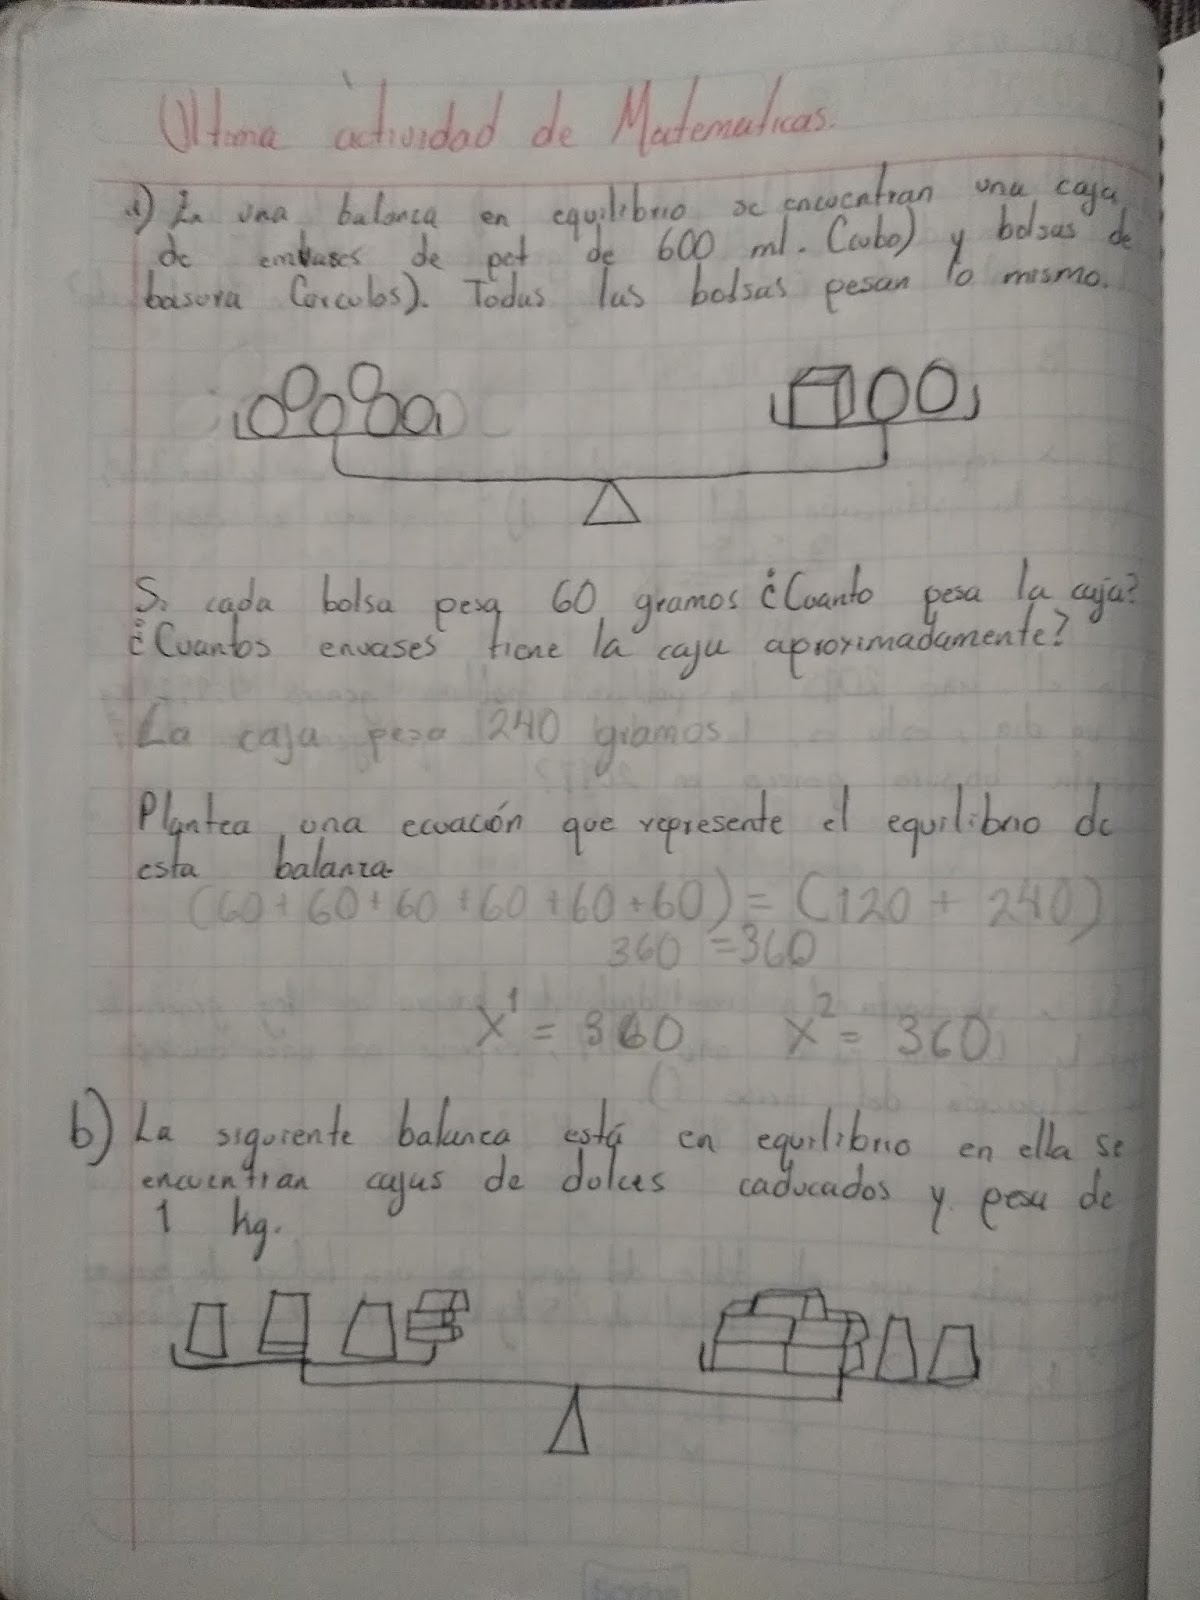 Ultima actividad de Matematicas.
a) En una balanca en equilibrio se encuentran una caja
de embases de pet de 600 ml. (cubo) y bolsas de
basura (circulos). Todas las bolsas pesan lo mismo.
Si cada bolsa pesa 60 gramos ¿Cuanto pesa la caja?
¿Cuantos envases tiene la caja aproximadamente?
La caja pesa 240 gramos
Plantea una ecuación que represente el equilibrio de
esta balanza.
(60+60+60+60+60+60)=(120+240)
360 =360
x¹ = 360 x² = 360
b) La siguiente balanca está en equilibrio en ella se
encuentran cajas de dulces caducados y pesa de
1 kg.
Scribe